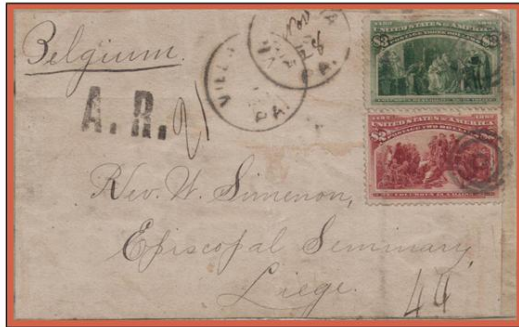 Belgium.
A. R.
VILLA
PA.
PA.
1492 1892
UNITED STATES OF AMERICA
$3 $3
1492 1892
UNITED STATES OF AMERICA
$2
Rev. W. Simenon,
Episcopal Seminary,
Liege.
44